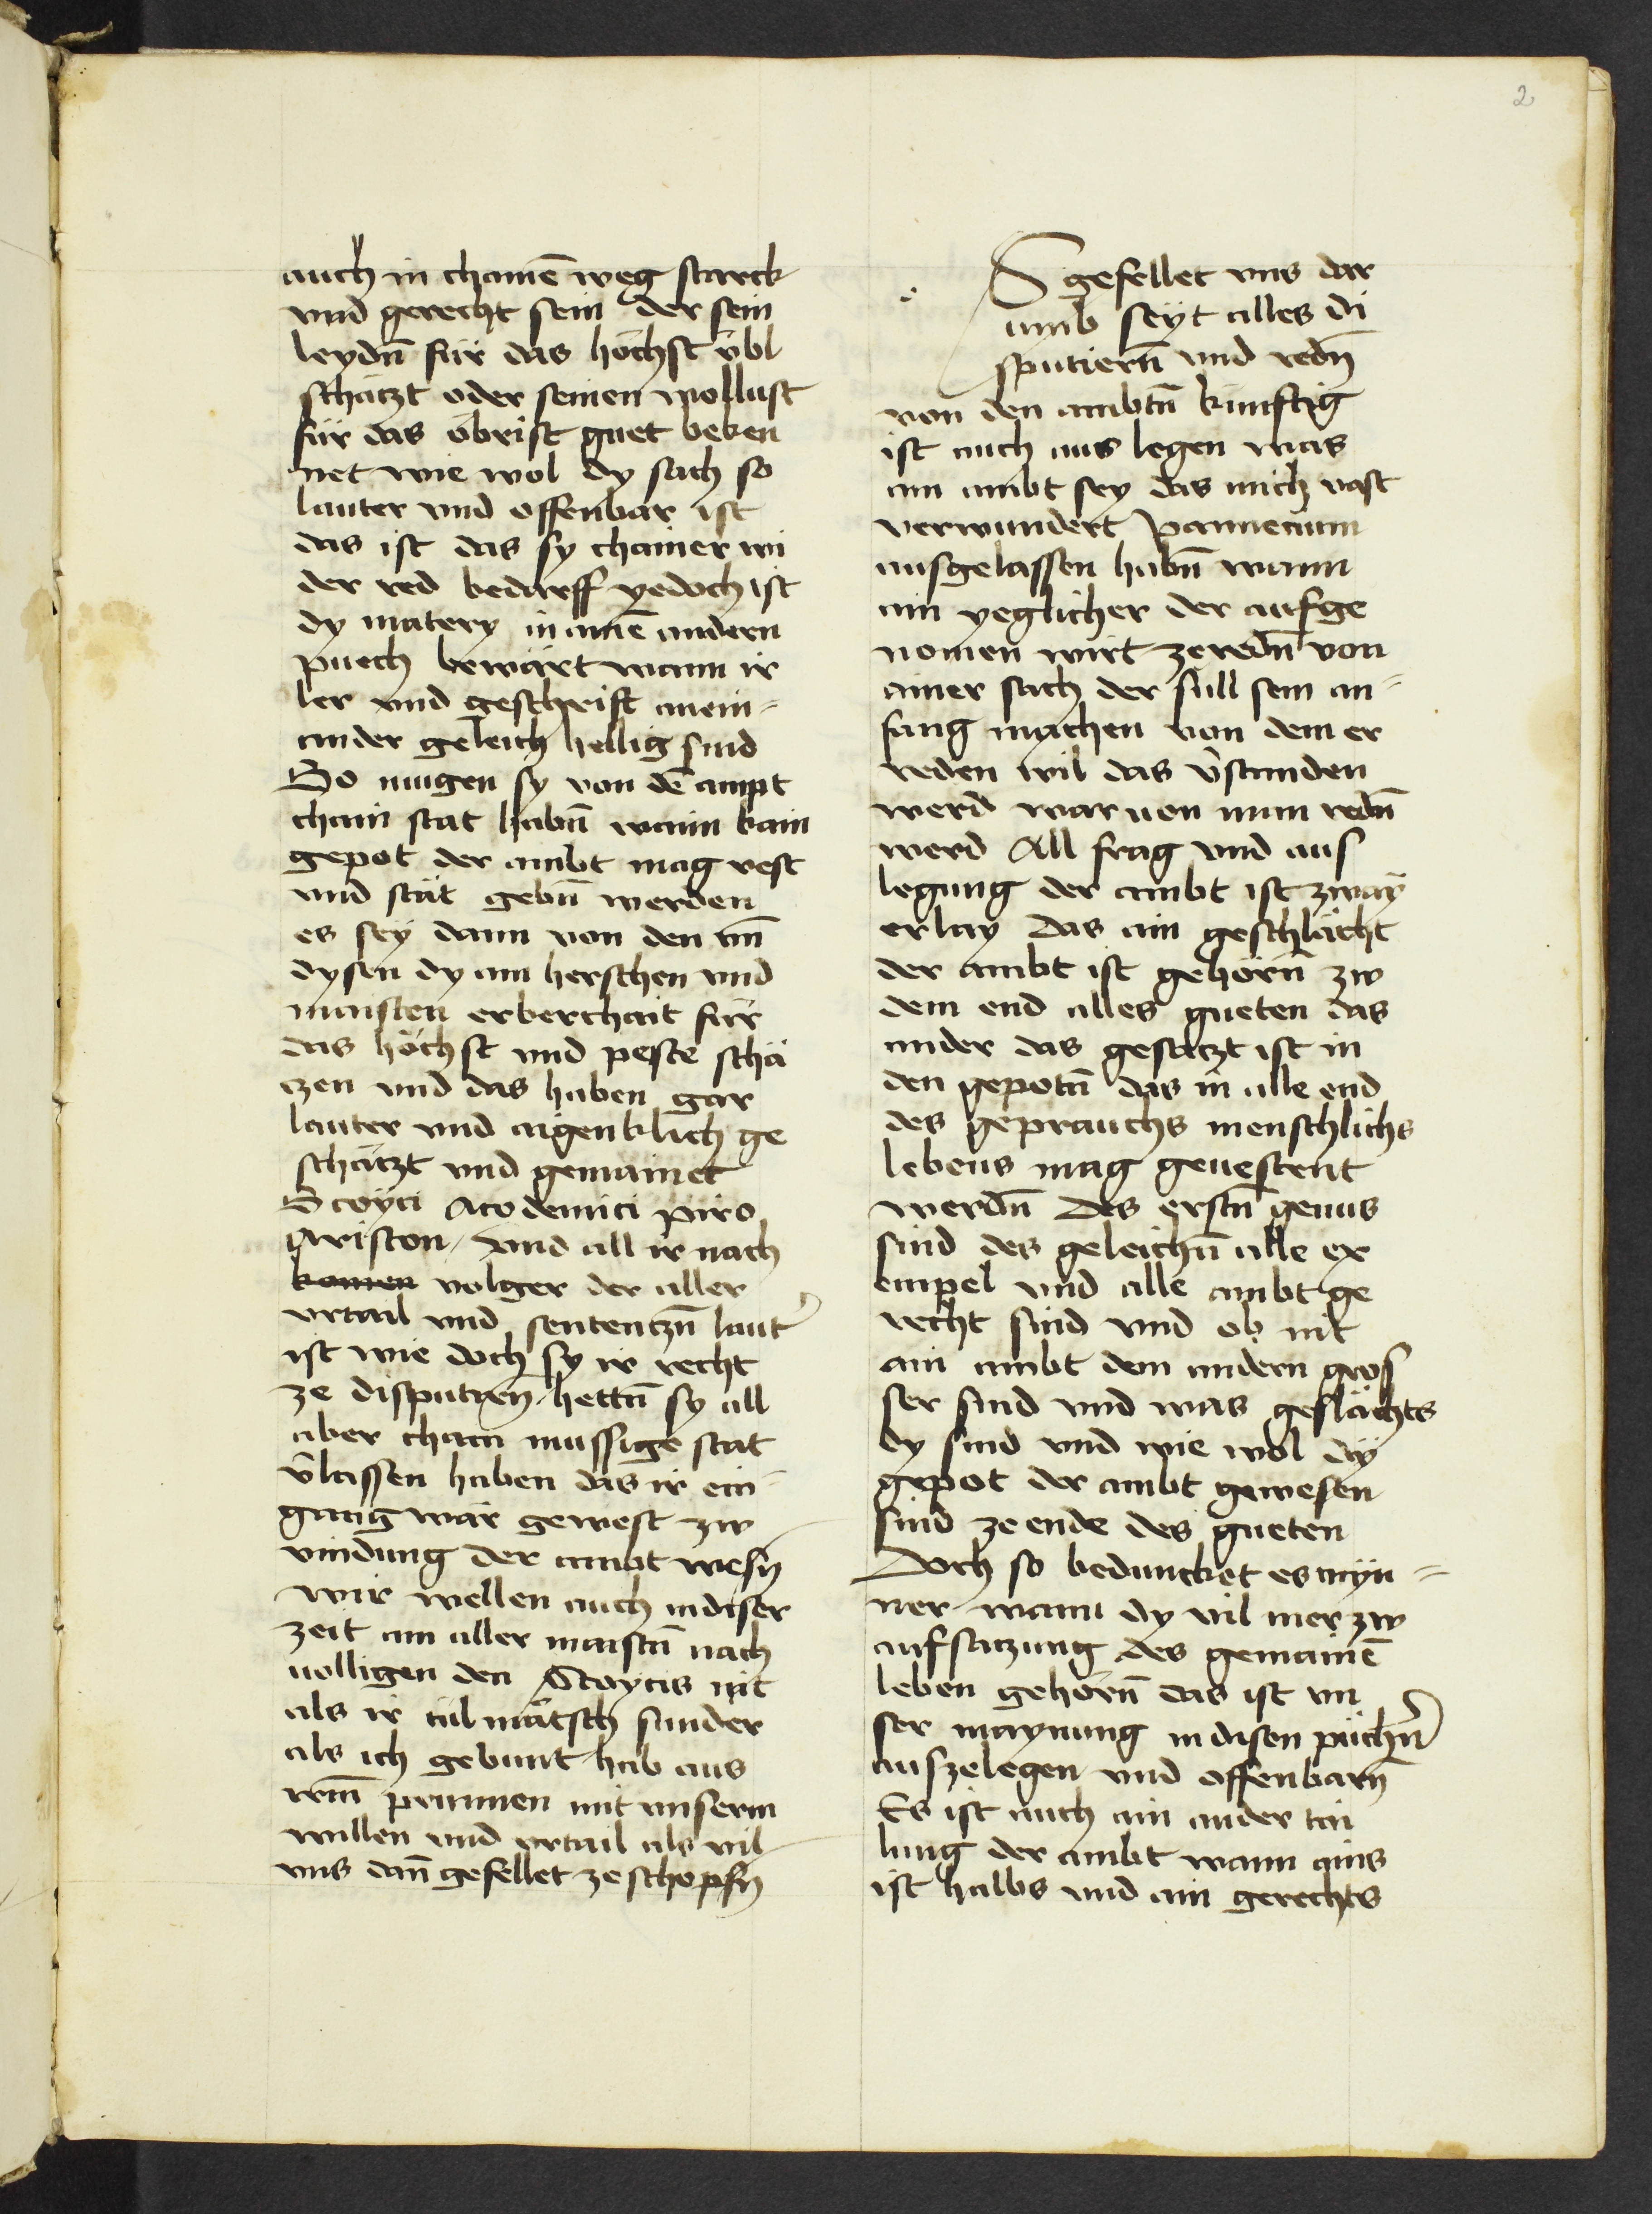 2
auch in chainē weg starck
vnd gerecht sein der sein
leydn̄ für das höchst übl
schätzt oder seinen wollust
für das öbrist guet beken
net wie wol dy sach so
lauter vnd offenbar ist
das ist das sy chainer wi
der red bedarff yedoch ist
dy matery in ainē andern
puech bewärt wann ir
ler vnd geschrift anein-
ander geleich hellig sind
So mugen sy von dē ampt
chain stat habn̄ wann kain
gepot der ambt mag vest
vnd stät gebn̄ werden
es sey dann von den
dysen dy am herschen vnd
maisten erberchait für
das höchst vnd peste schä
czen vnd das haben gar
lauter vnd aigenklich ge
schätzt vnd gemainet
Stoyci Acodemici piro
Ariston / vnd all ir nach
komen volger der aller
vrtail vnd sententzn̄ laut̾
ist wie doch sy ir recht
ze disputirn̄ hettn̄ sy all
aber chain mussige stat
v̄lassen haben das ir ein-
gang wär gewest zw
vindung der ambt wesn̄
wir wellen auch in diser
zeit am aller maistn̄ nach
uolligen den Stoycis nit
als ir tülmätsch sunder
als ich gebunt hab aus
irm̄ prunnen mit vnserm
willen vnd vrtail als vil
vns dan̄ gefellet ze schopfn̄
S gefellet vns dar
umb seyt alles di
sputiern̄ vnd redn̄
von den ambtn̄ künftig
ist auch aus legen was
ain ambt sey das mich vast
verwundert Pannecium
ausgelassen habn̄ wann
ain yeglicher der aufge
nomen wirt ze redn̄ von
ainer sach der sull sein an-
fang machen von dem er
reden wil das v̄standen
werd war uon man redn̄
werd All frag vnd aus
legung der ambt ist zway
erlay Das ain geschlächt
der ambt ist gehörn̄ zw
dem end alles gueten das
ander das gesatzt ist in
den gepotn̄ das in alle end
des geprauchs menschlichs
lebens mag geuestent
werdn̄ Des erstn̄ genus
sind des geleichn̄ alle ex
empel vnd alle ambt ge
recht sind vnd ob nit
ain ambt dem andern gros
ser sind vnd was geslächts
dy sind vnd wie wol dÿ
gepot der ambt gewesen
sind ze ende des gueten
Doch so beduncket es myn-
ner wann dy vil mer zw
aufsatzung des gemainē
leben gehörn̄ das ist vn
ser maynung in disen püchn̄
auszelegen vnd offenbarn̄
Es ist auch ain ander tai
lung der ambt wann ains
ist halbs vnd ain gerechts